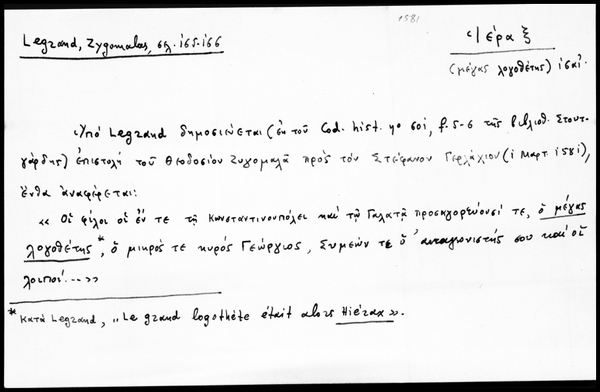 1581
Legrand, Zygomalas, σελ. 165-166
Ἱέραξ
(μέγας λογοθέτης) 1581.
Ὑπό Legrand δημοσιεύεται (ἐκ τοῦ Cod. hist. No 601, f. 5-6 τῆς βιβλιοθ. Στουτ-
γάρδης) ἐπιστολή τοῦ Θεοδοσίου Ζυγομαλᾶ πρός τόν Στέφανον Γερλάχιον (1 Μαρτ. 1581),
ἔνθα ἀναφέρεται:
« Οἱ φίλοι οἱ ἔν τε τῇ Κωνσταντινουπόλει καί τῷ Γαλατᾷ προσαγορεύουσί τε, ὁ μέγας
λογοθέτης*, ὁ μικρός τε κυρός Γεώργιος, Συμεών τε ὁ ἀνταγωνιστής σου καί οἱ
λοιποί... »
* Κατά Legrand, „Le grand logothète était alors Hiérax».